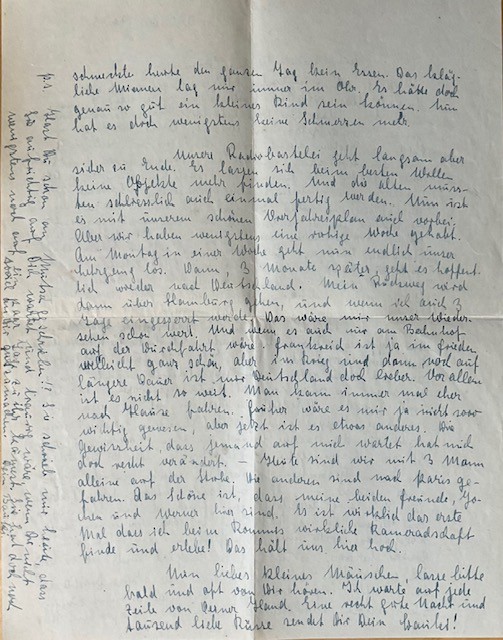 schmeckte heute den ganzen Tag kein Essen. Das kläg-
liche Miauen lag mir immer im Ohr. Es hätte doch
genau so gut ein kleines Kind sein können. Nun
hat es doch wenigstens keine Schmerzen mehr.
Unsere Radiobastelei geht langsam aber
sicher zu Ende. Es lassen sich beim besten Willen
keine Objekte mehr finden. Und die alten muss-
ten schliesslich auch einmal fertig werden. Nun ist
es mit unserem schönen Vierjahresplan auch vorbei.
Aber wir haben wenigstens eine ruhige Woche gehabt.
Am Montag in einer Woche geht nun endlich unser
Lehrgang los. Dann, 3 Monate später, geht es hoffent-
lich wieder nach Deutschland. Mein Rückweg wird
dann über Hamburg gehen, und wenn ich auch 3
Tage eingesperrt werde. Das wäre mir unser Wieder-
sehen schon wert. Und wenn es auch nur am Bahnhof
auf der Durchfahrt wäre. Frankreich ist ja im Frieden
vielleicht ganz schön, aber im Krieg und dann noch auf
längere Dauer ist mir Deutschland doch lieber. Vor allem
ist es nicht so weit. Man kann immer mal eher
nach Hause fahren. Früher wäre es mir ja nicht so
wichtig gewesen, aber jetzt ist es etwas anderes. Die
Gewissheit, dass jemand auf mich wartet hat mich
doch recht verändert. – Heute sind wir mit 3 Mann
alleine auf der Stube. Die anderen sind nach Paris ge-
fahren. Das Schöne ist, dass meine beiden Freunde, Jo-
chen und Werner hier sind. Es ist wirklich das erste
Mal dass ich beim Kommis wirkliche Kameradschaft
finde und erlebe! Das hält uns hier hoch.
Mein liebes kleines Mäuschen, lasse bitte
bald und oft von Dir hören. Ich warte auf jede
Zeile von Deiner Hand. Eine recht gute Nacht und
tausend liebe Küsse sendet Dir Dein
P.S. Hast Du schon an geschrieben!! Sie schrieb mir heute, dass
Sie auf Dich wartet. Und wäre, wenn Du nicht
wenigstens noch auf ein paar Tage zu Ihr